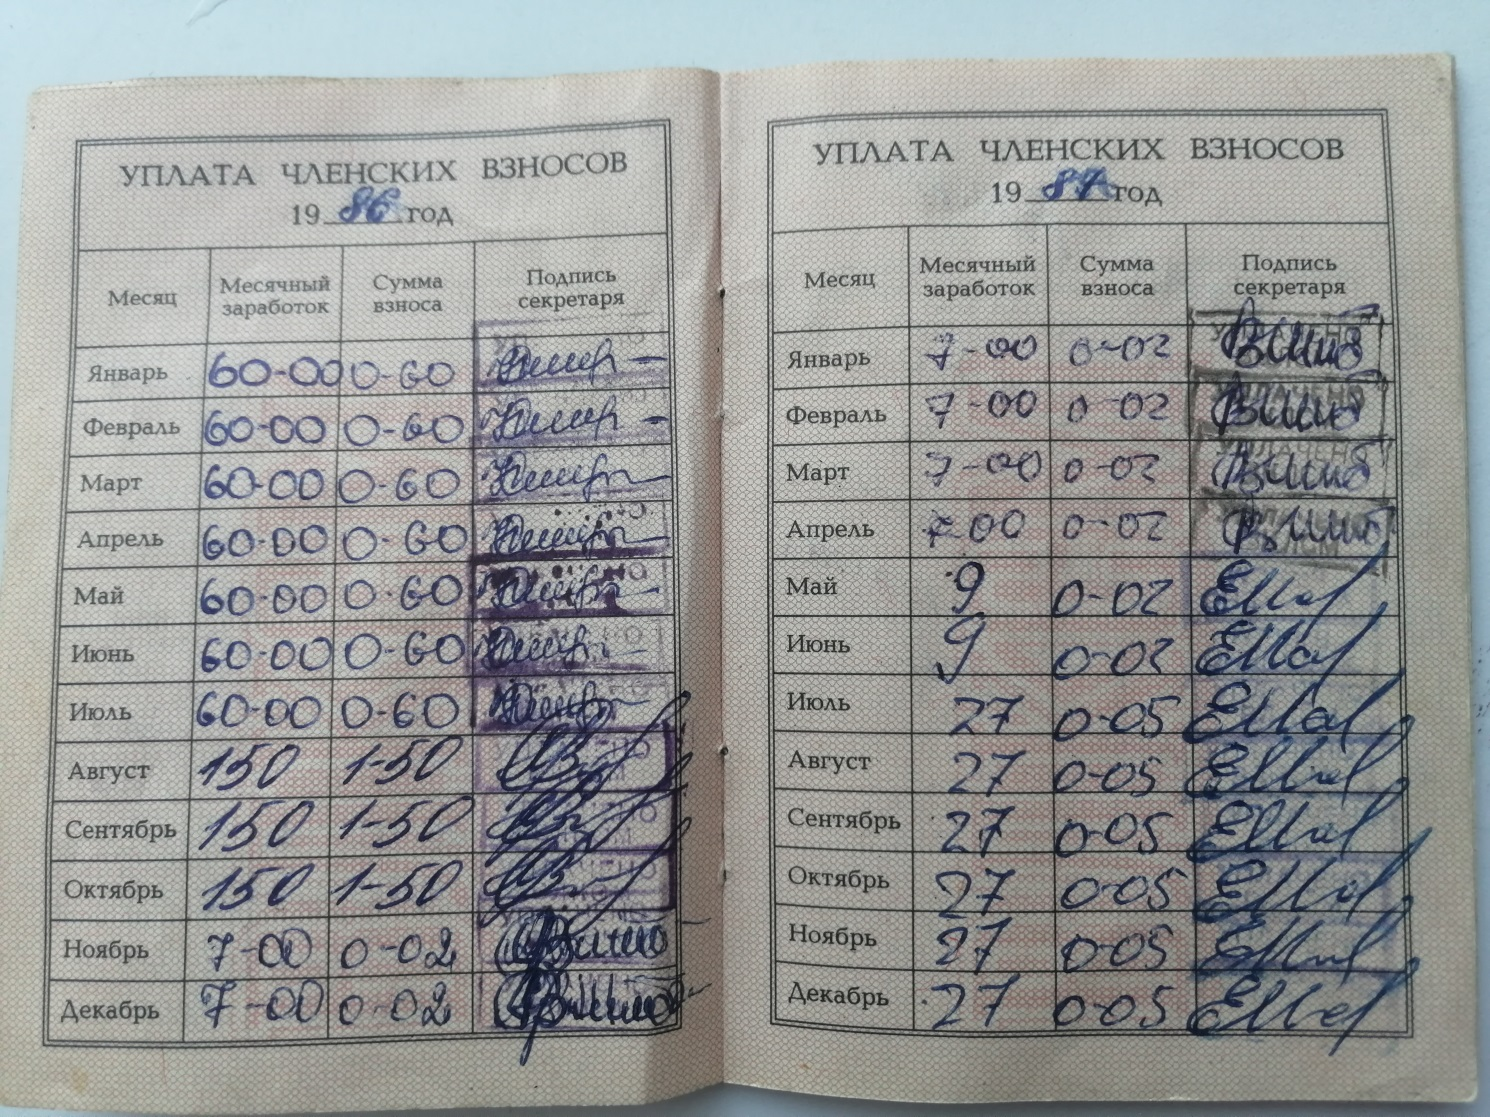 УПЛАТА ЧЛЕНСКИХ ВЗНОСОВ
19 86 год
Месяц Месячный заработок Сумма взноса Подпись секретаря
Январь 60-00 0-60
Февраль 60-00 0-60
Март 60-00 0-60
Апрель 60-00 0-60
Май 60-00 0-60
Июнь 60-00 0-60
Июль 60-00 0-60
Август 150 1-50
Сентябрь 150 1-50
Октябрь 150 1-50
Ноябрь 7-00 0-02
Декабрь 7-00 0-02
УПЛАТА ЧЛЕНСКИХ ВЗНОСОВ
19 87 год
Месяц Месячный заработок Сумма взноса Подпись секретаря
Январь 7-00 0-02
Февраль 7-00 0-02 УПЛАЧЕНО
Март 7-00 0-02 УПЛАЧЕНО
Апрель 7-00 0-02
Май 9 0-02
Июнь 9 0-02
Июль 27 0-05
Август 27 0-05
Сентябрь 27 0-05
Октябрь 27 0-05
Ноябрь 27 0-05
Декабрь 27 0-05